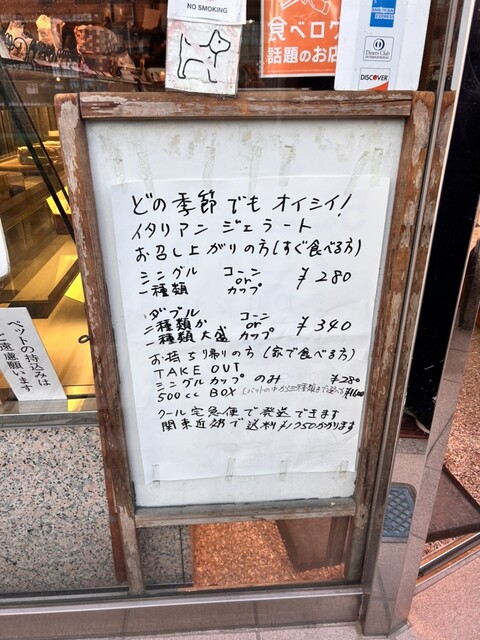 NO SMOKING
食べログ
話題のお店
Diners Club
INTERNATIONAL
DISCOVER
どの季節でもオイシイ!
イタリアン ジェラート
お召し上がりの方(すぐ食べる方)
シングル コーン
一種類 or カップ ¥280
ダブル コーン
二種類か or ¥340
一種類大盛 カップ
お持ち帰りの方 (家で食べる方)
TAKE OUT
シングルカップ のみ ¥280
500cc BOX
クール宅急便で発送できます
関東近郊で送料¥1250かかります
ペットの持込みは
ご遠慮願います